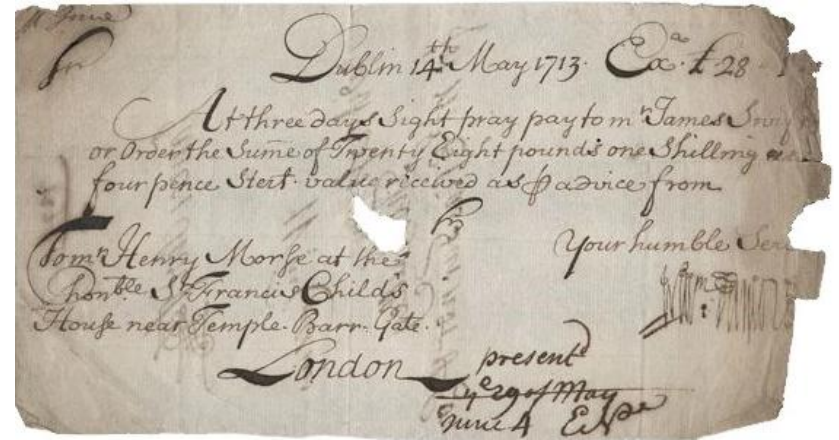 Sr
Dublin 14th May 1713. Exa. £ 28
At three days Sight pray pay to mr James
or Order the Sume of Twenty Eight pounds one Shilling
four pence Sterl. value received as ꝑ advice from
Sr
Your humble Ser
To mr Henry Morse at the
honble Sr Francis Child's
House near Temple. Barr. Gate.
London
presentd
ye 29 of May
June 4